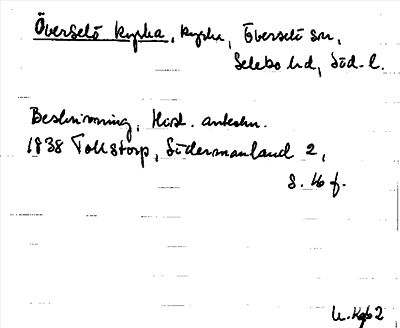 Överselö kyrka, kyrka, Överselö sn,
Selebo hd, Söd. l.
Beskrivning, Hist. anteckn.
1838 Tollstorp, Södermanland 2,
s. 16 f.